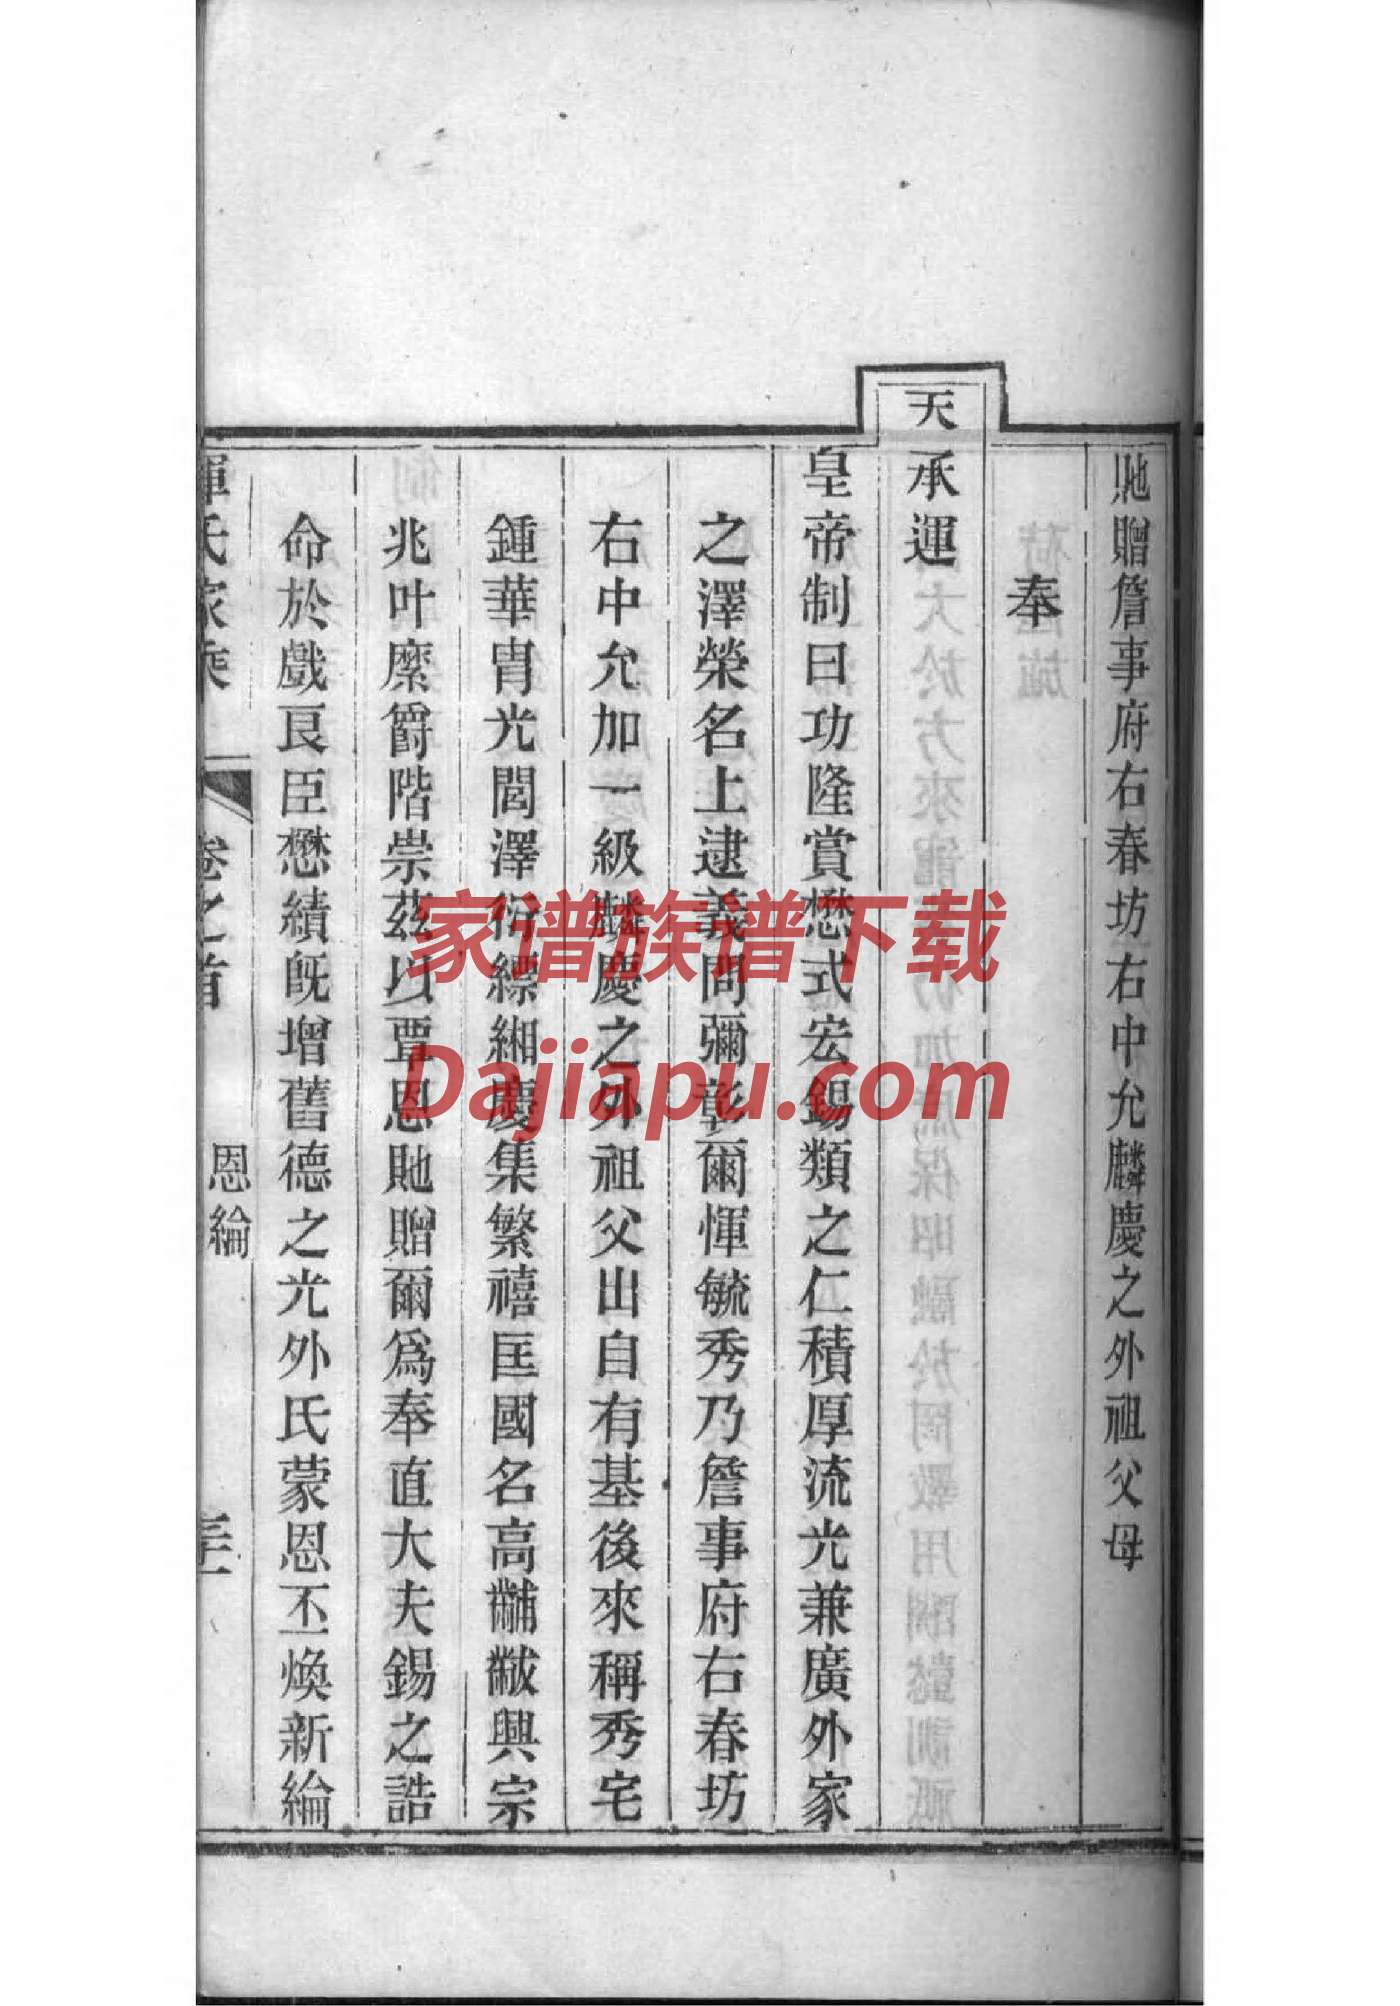 貤贈詹事府右春坊右中允麟慶之外祖父母
奉
天承運
皇帝制曰功隆賞懋式宏錫類之仁積厚流光兼廣外家
之澤榮名上逮義問彌彰爾惲毓秀乃詹事府右春坊
右中允加一級麟慶之外祖父出自有基後來稱秀宅
鍾華胄光閭澤衍縹緗慶集繁禧匡國名高黼黻興宗
兆叶縻爵階崇茲以覃恩貤贈爾爲奉直大夫錫之誥
命於戲良臣懋績旣增舊德之光外氏蒙恩丕煥新綸
惲氏家乘 卷之首 恩綸
家谱族谱下载
Dajiapu.com